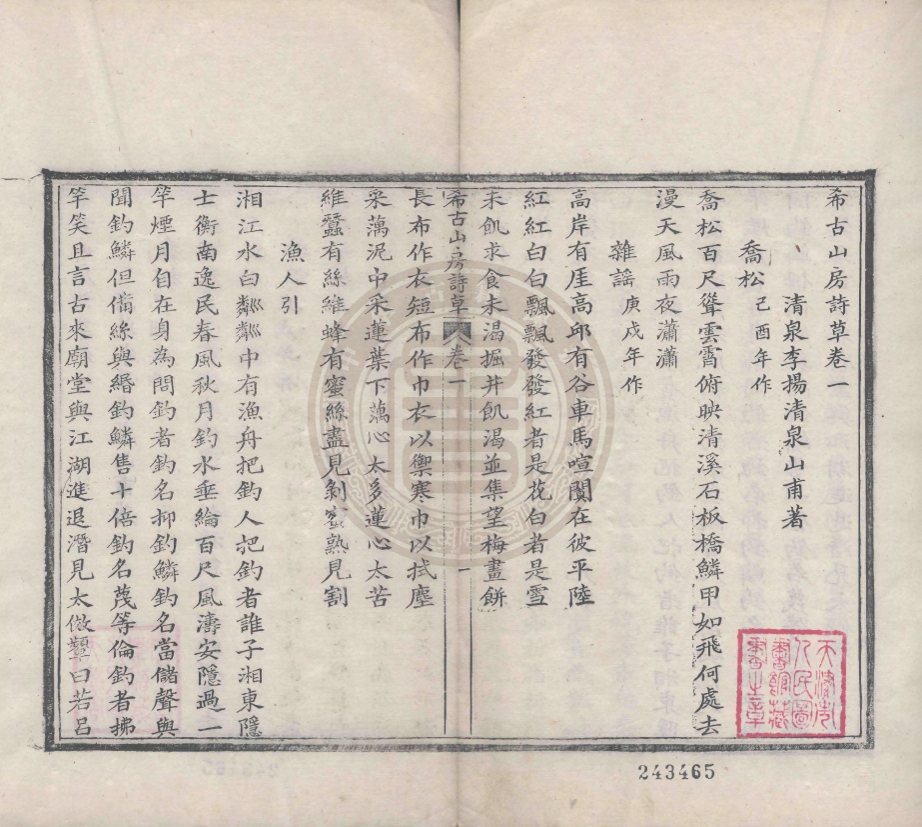 希古山房詩草卷一
清泉李揚清泉山甫著
喬松己酉年作
喬松百尺聳雲霄俯映清溪石板橋鱗甲如飛何處去
漫天風雨夜瀟瀟
雜謡庚戌年作
高岸有厓高邱有谷車馬喧闐在彼平陸
紅紅白白飄飄發發紅者是花白者是雪
未飢求食未渴掘井飢渴並集望梅畫餅
希古山房詩草 卷一 一
長布作衣短布作巾衣以禦寒巾以拭塵
采藕泥中采蓮葉下藕心太多蓮心太苦
維蠶有絲維蜂有蜜絲盡見剝蜜熟見割
漁人引
湘江水白粼粼中有漁舟把釣人把釣者誰子湘東隱
士衡南逸民春風秋月釣水垂綸百尺風濤安隱過一
竿煙月自在身為問釣者釣名抑釣鱗釣名當儲聲與
聞釣鱗但備絲與緡釣鱗售十倍釣名茂等倫釣者拂
竿笑且言古來廟堂與江湖進退潛見太倣顰曰若呂
天津市人民圖書館藏書之章
243465